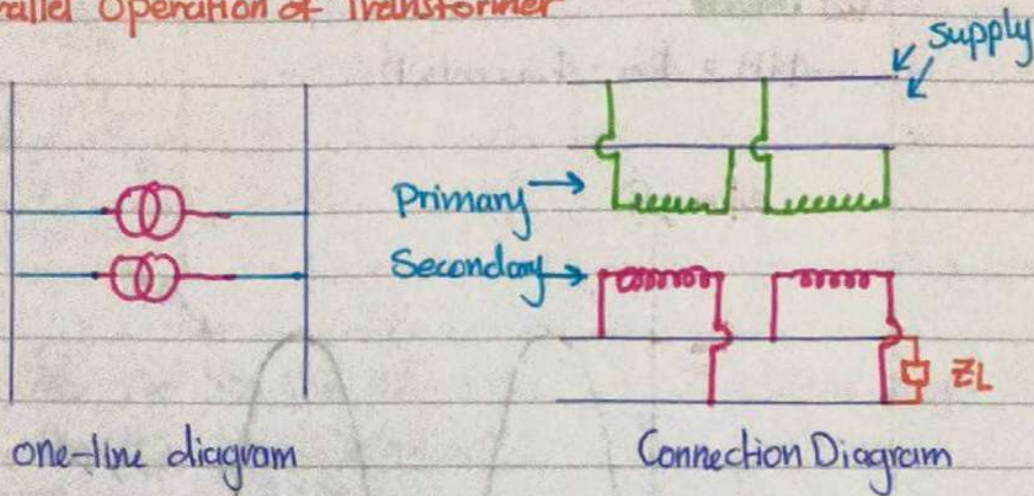 Parallel Operation of Transformer
Supply
Primary
Secondary
ZL
one-line diagram
Connection Diagram